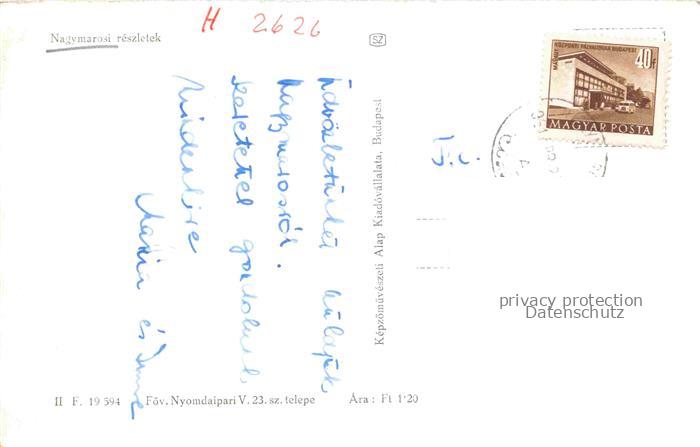 H 2626
Nagymarosi részletek
SZ
MÁVAUT KÖZPONTI PÁLYAUDVAR BUDAPEST
40 f
MAGYAR POSTA
Üdvözletünket küldjük
Nagymarosról.
Szeretettel gondolunk
Mindenkire
Mária és Imre
Képzőművészeti Alap Kiadóvállalata, Budapest
F.c.
privacy protection
Datenschutz
II F. 19 594 Főv. Nyomdaipari V. 23. sz. telepe Ára : Ft 1·20